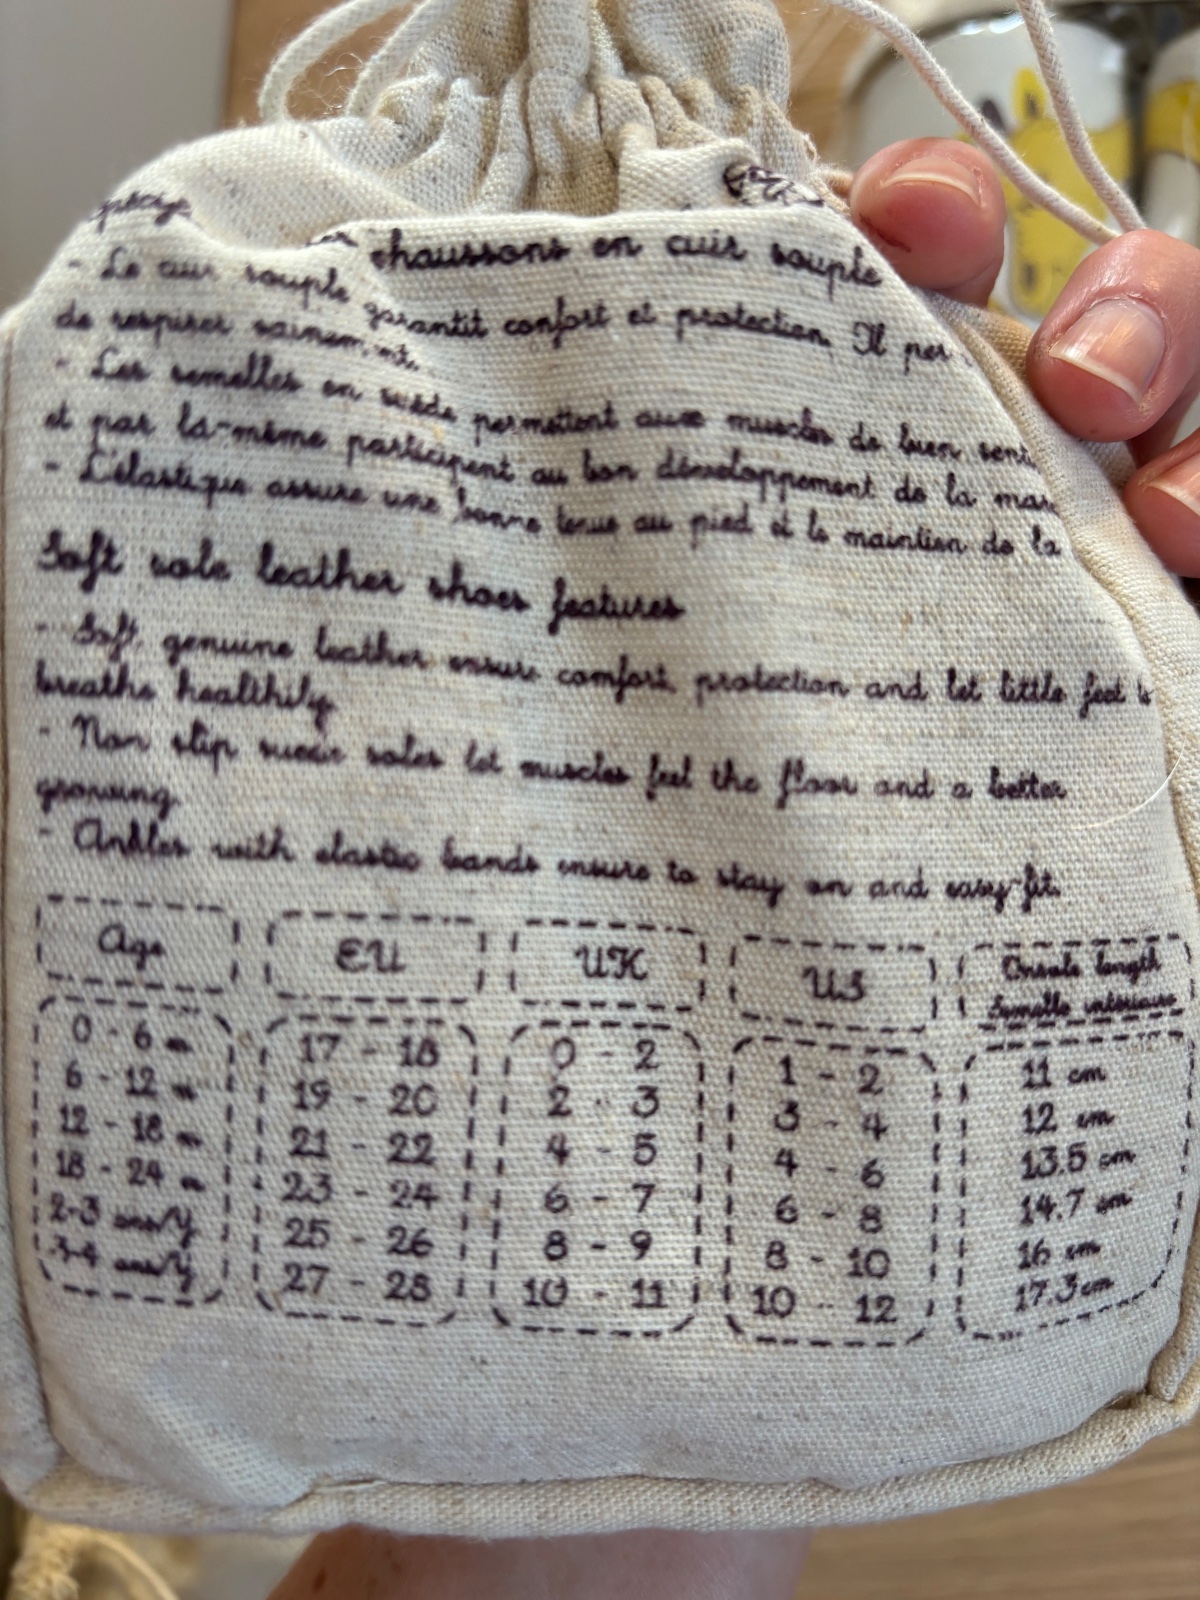 chaussons en cuir souple
- Le cuir souple garantit confort et protection. Il per
de respirer sainement.
- Les semelles en suède permettent aux muscles de bien senti
et par la-même participent au bon développement de la mar
- L'élastique assure une bonne tenue au pied et le maintien de la
Soft sole leather shoes features
- Soft genuine leather ensure comfort, protection and let little feet to
breathe healthily.
- Non slip suede soles let muscles feel the floor and a better
growing.
- Ankles with elastic bands ensure to stay on and easy-fit.
Age EU UK US Insole length
Semelle intérieure
0 - 6 m 17 - 18 0 - 2 1 - 2 11 cm
6 - 12 m 19 - 20 2 - 3 3 - 4 12 cm
12 - 18 m 21 - 22 4 - 5 4 - 6 13.5 cm
18 - 24 m 23 - 24 6 - 7 6 - 8 14.7 cm
2-3 ans/Y 25 - 26 8 - 9 8 - 10 16 cm
3-4 ans/Y 27 - 28 10 - 11 10 - 12 17.3cm